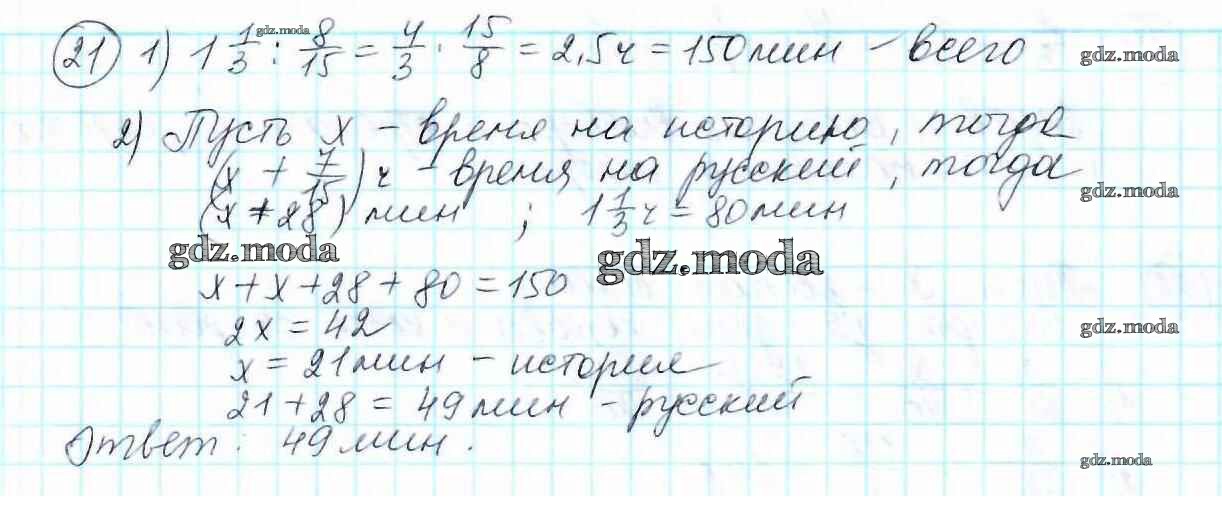 21 1) 1 1/3 : 8/15 = 4/3 · 15/8 = 2,5ч = 150мин – всего
2) Пусть x – время на историю, тогда
(x + 7/15) ч – время на русский, тогда
(x + 28) мин ; 1 1/3 ч = 80мин
x + x + 28 + 80 = 150
2x = 42
x = 21мин – история
21 + 28 = 49мин – русский
Ответ: 49мин.
gdz.moda
gdz.moda
gdz.moda
gdz.moda
gdz.moda
gdz.moda
gdz.moda